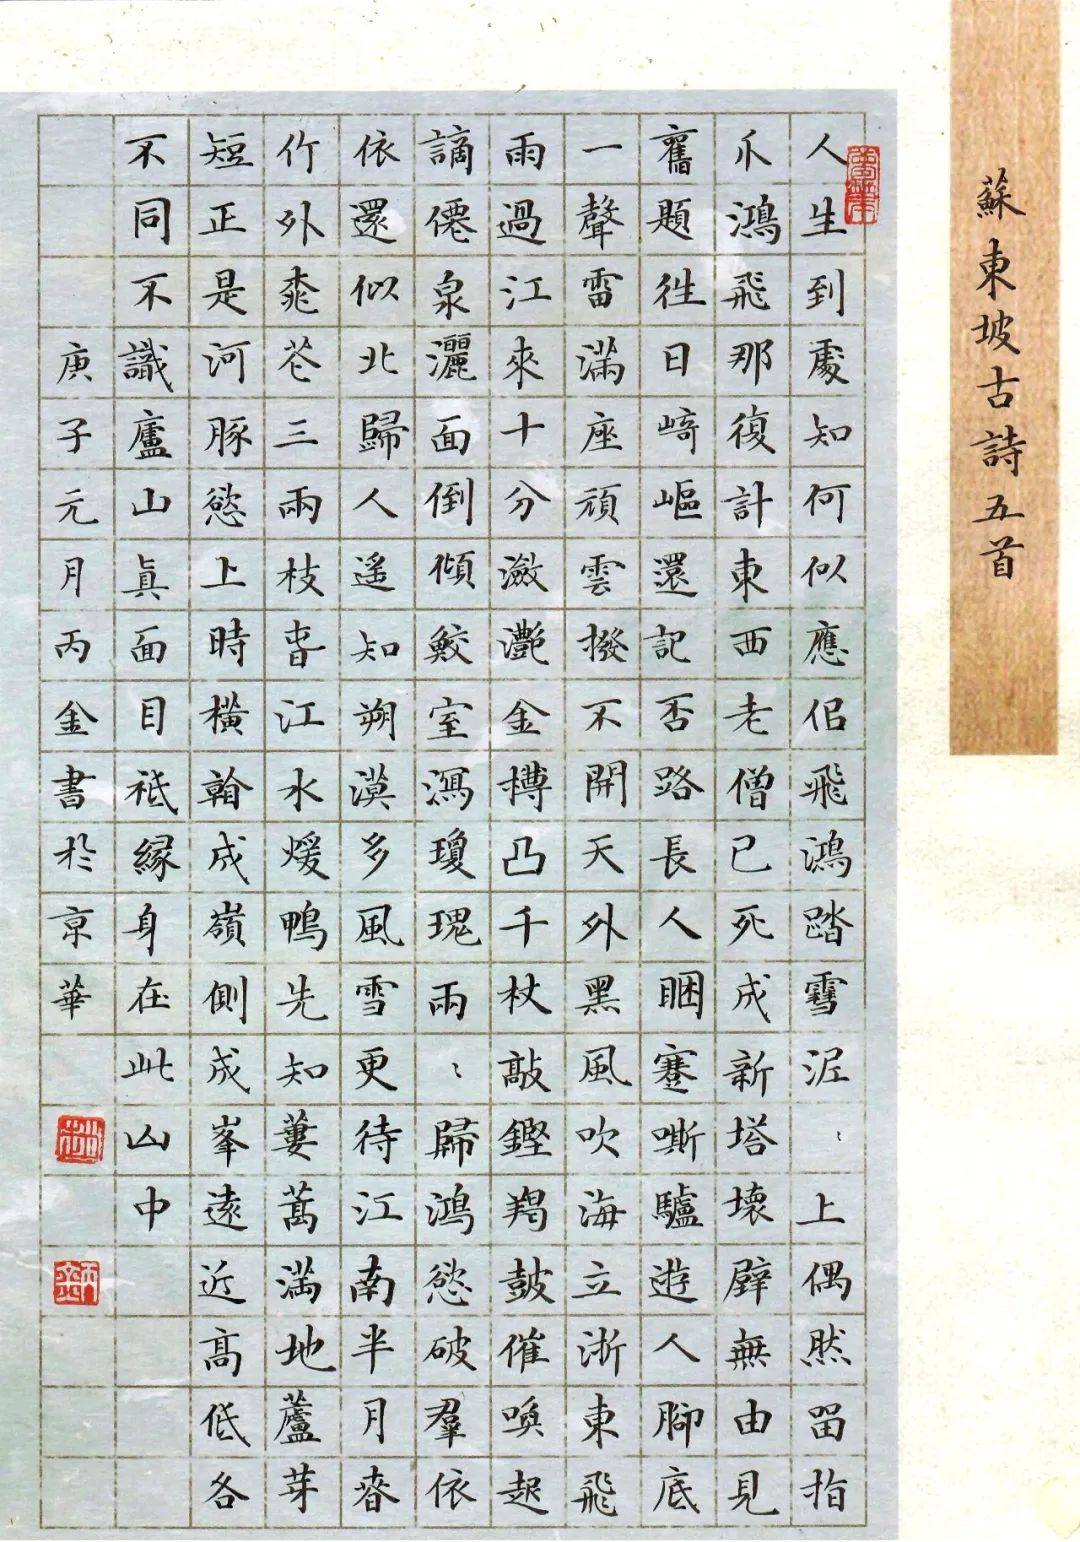 蘇東坡古詩五首
人生到處知何似應侣飛鴻踏雪泥〻上偶然留指
爪鴻飛那復計東西老僧已死成新塔壞壁無由見
舊題往日崎嶇還記否路長人睏蹇嘶驢遊人脚底
一聲雷滿座頑雲撥不開天外黑風吹海立浙東飛
雨過江來十分瀲灔金樽凸千杖敲鏗羯鼓催喚起
謫僊泉灑面倒傾鮫室瀉瓊瑰兩〻歸鴻慾破羣依
依還似北歸人遙知朔漠多風雪更待江南半月春
竹外桃花三兩枝春江水煖鴨先知蔞蒿滿地蘆芽
短正是河豚慾上時橫翰成嶺側成峯遠近高低各
不同不識廬山眞面目祗緣身在此山中
庚子元月丙金書於京華